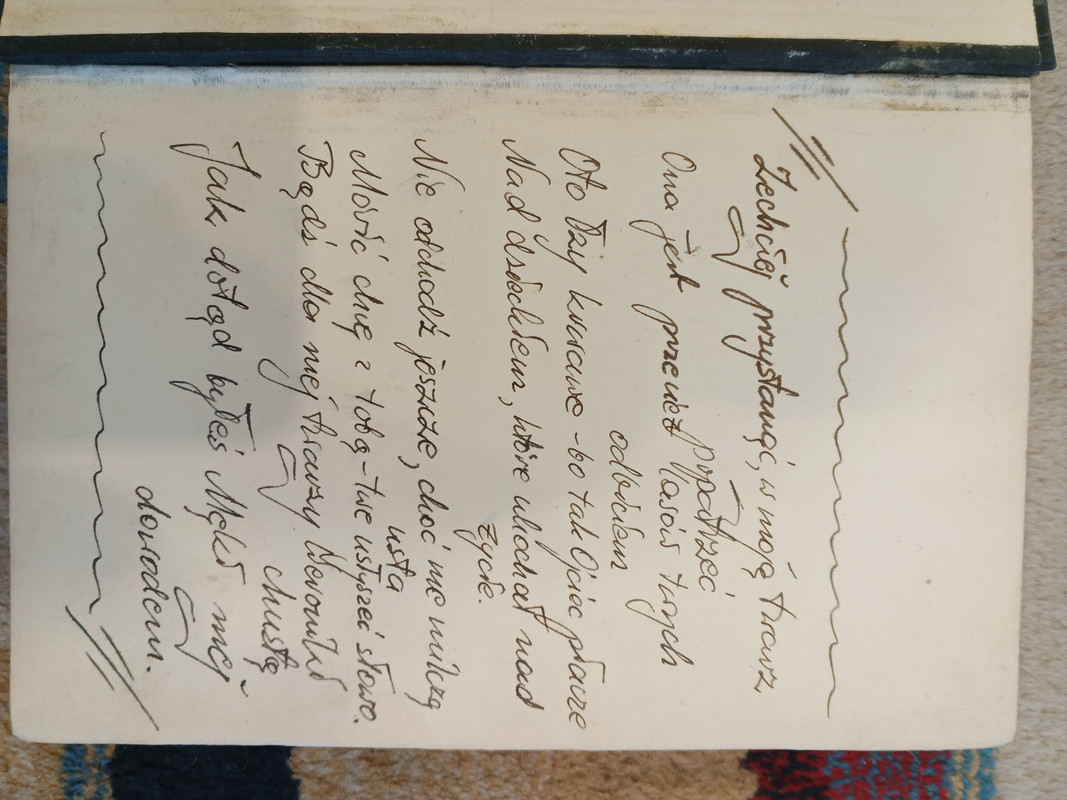 Zechciej przystanąć, w moją twarz
popatrzeć
Ona jest przecież twych
odbiciem
Oto łzy krwawe - bo tak Ojciec płacze
Nad dzieckiem, które ukochał nad
życie.
Nie odchodź jeszcze, choć me milczą
usta
Mówić chcę z tobą - twe usłyszeć słowo.
Bądź dla mej twarzy Weroniki
chustą
Jak dotąd byłeś Męki mej
dowodem.